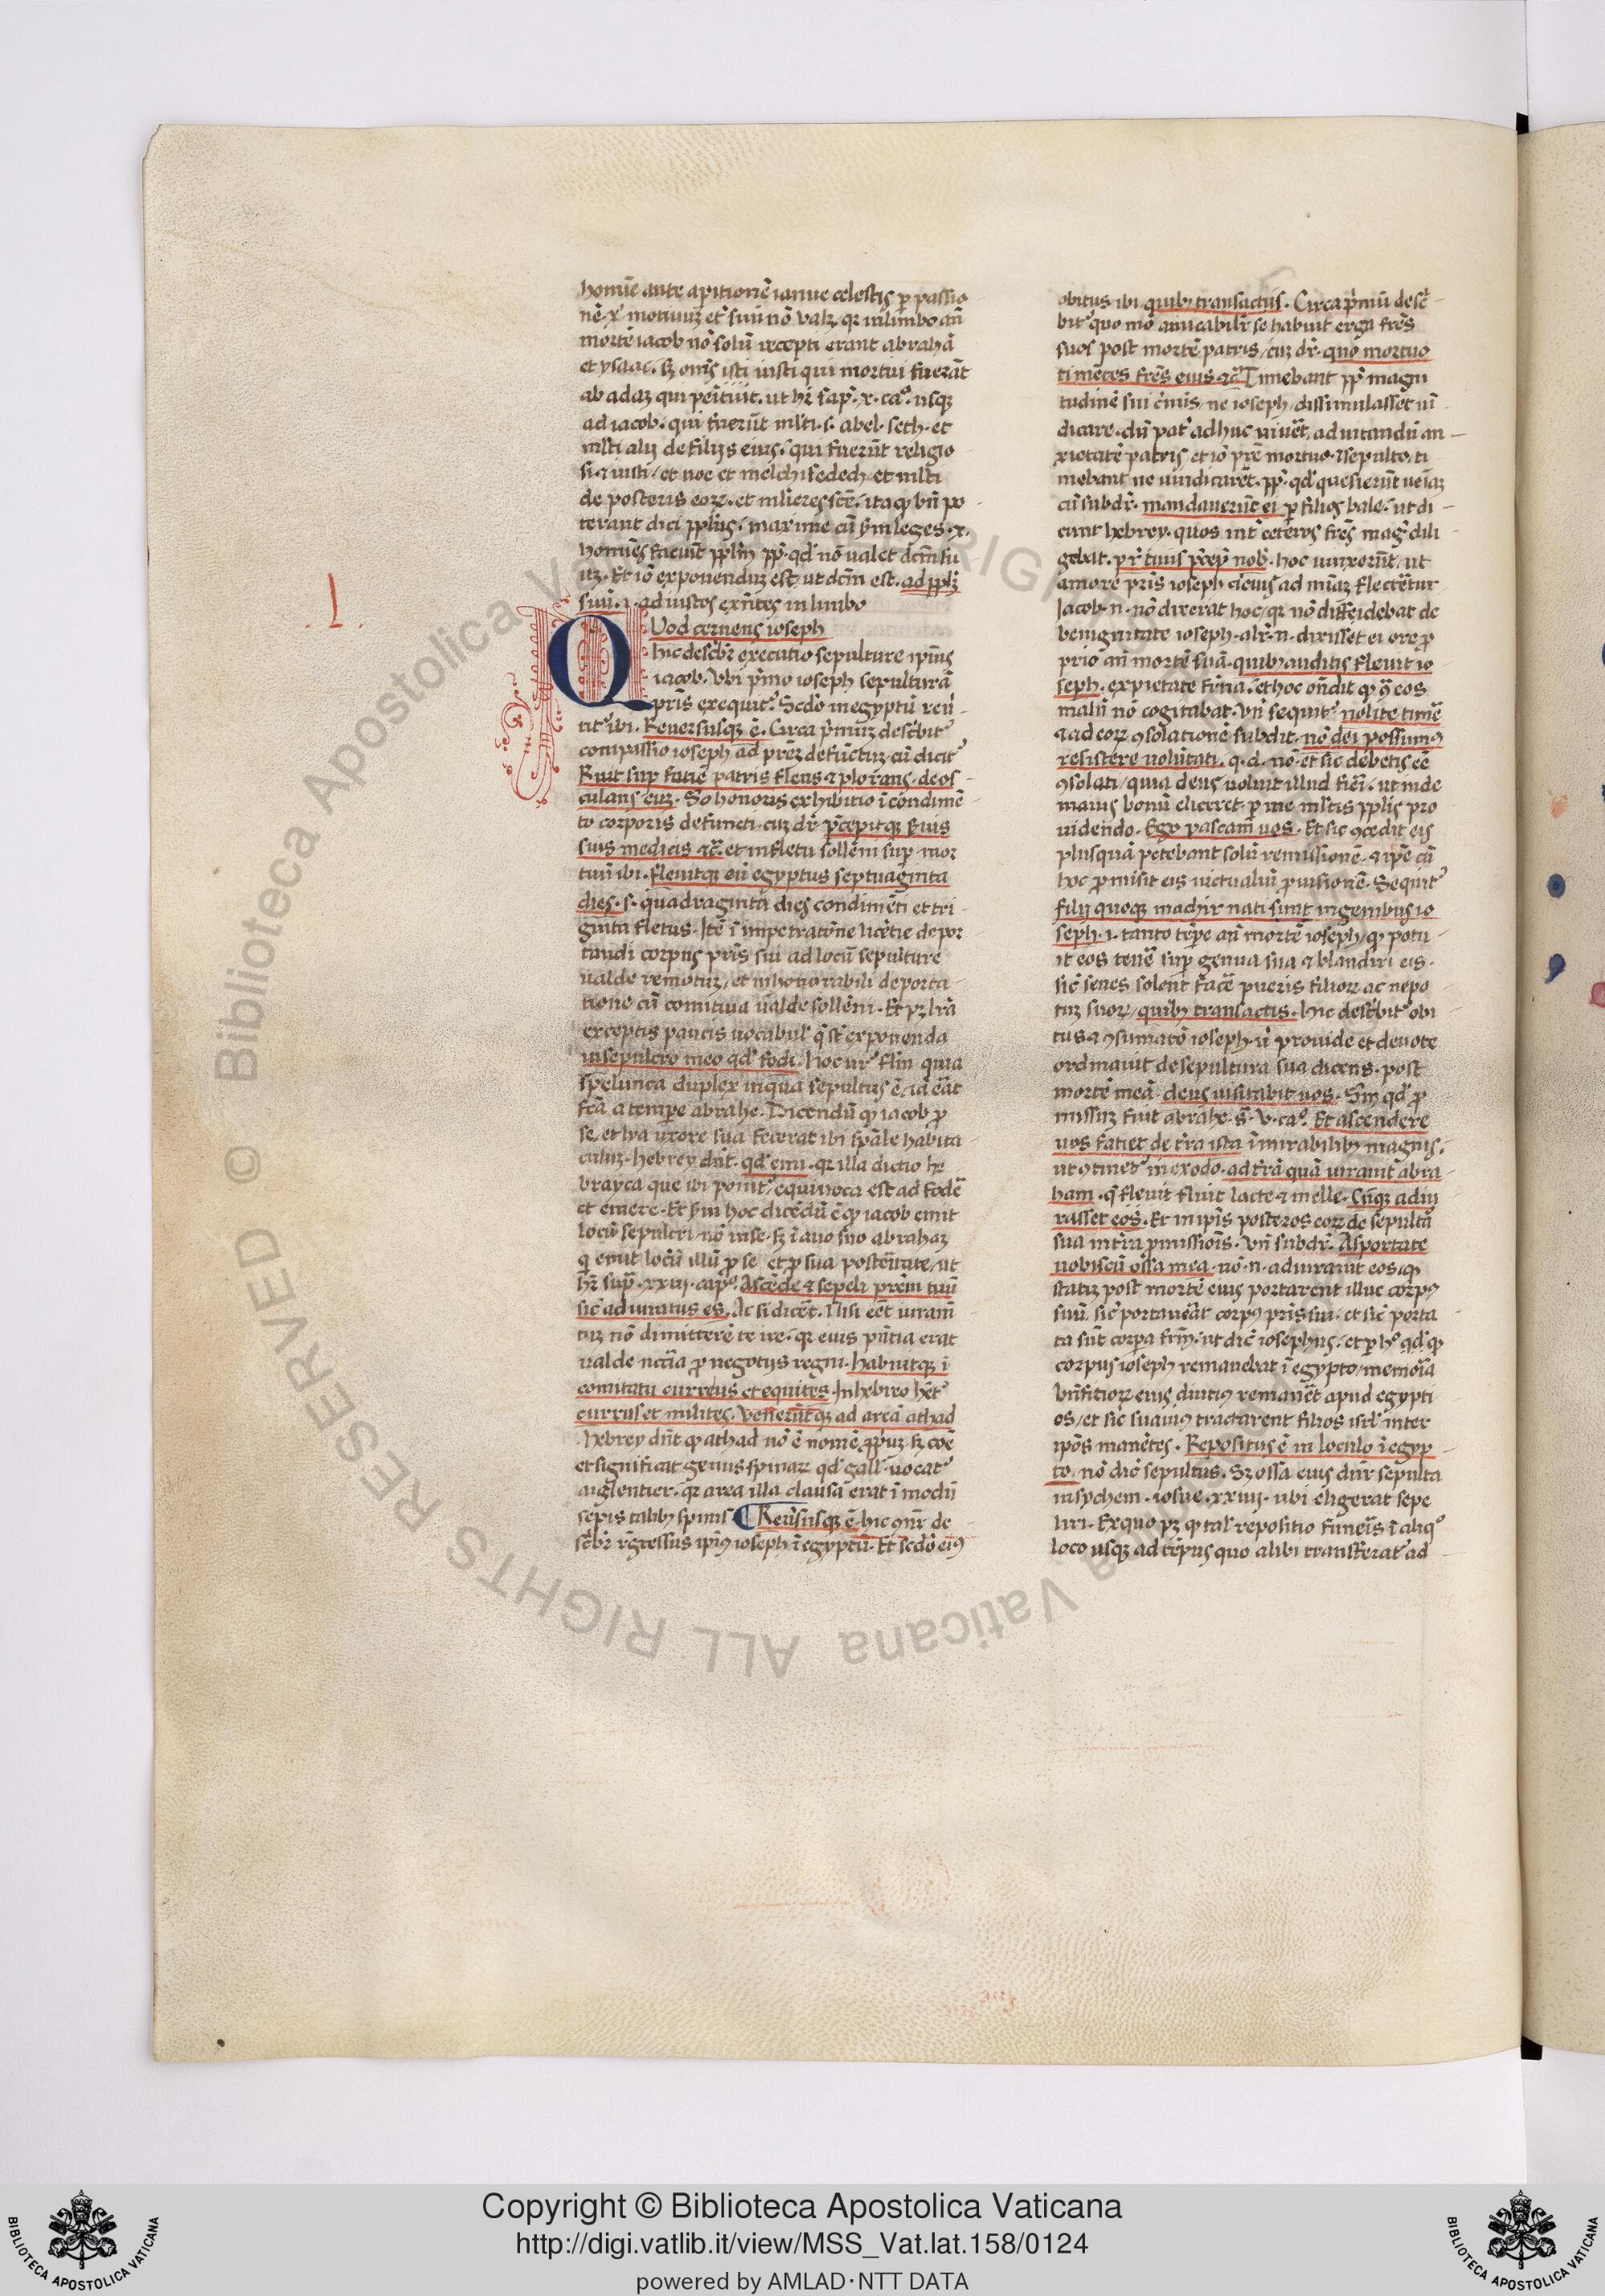 homīe ante aꝑitionē ianue celestis ꝑ passio
nē xⁱ motiuuꝫ etᵉ suū nō valꝫ qꝛ in limbo añ
mortē iacob nō solū recepti erant abrahā
et ysaac. sꝫ om̄s isti iusti qui mortui fuerāt
ab adaꝫ qui penituit. ut hr̄ sap̄. x. caᵒ. usqꝫ
ad iacob. qui fuerūt ml̄ti. s. abel. seth. et
ml̄ti alij de filijs eius. qui fuerūt religio
si ⁊ iusti / et noe et melchisedech et ml̄ti
de posteris eoꝝ. et mulieres scē. itaqꝫ bn̄ po
terant dici ppl̄us. maxime cū ẜm leges. x.
homīes faciūt ppl̄m pp̄. qd̓ nō ualet dictm̄ su
uꝫ. Et iō exponenduꝫ est, ut dictm̄ est. ad ppl̄ꝫ
suū .i. ad iustos exn̄tes in limbo
.l.
Quod cernens ioseph
hic describr̄ executio sepulture ip̄ius
iacob. Vbi pͥmo ioseph sepulturā
pr̄is exequitᵉ. Scd̓o in egyptū reū
titᵉ ibi. Reuersusqꝫ ē. Circa pͥmuꝫ describitᵉ
compassio ioseph ad prēꝫ defūctuꝫ cū dicitᵉ
Ruit suꝑ faciē patris flens ⁊ plorans. deos
culans euꝫ. So honoris exhibitio ī condimē
to corporis defuncti. cuꝫ dr̄. p̄cepitqꝫ suis
suis medicis ⁊c̄. et in fletu sollēni suꝑ mor
tuū ibi. fleuitqꝫ eū egyptus septuaginta
dies. s. quadraginta dies condimēti et tri
ginta fletus. Itē ī impetratōne licētie depor
tandi corpus pr̄is sui ad locū sepulture
ualde remotuꝫ, et in honorabili deporta
tione cū comitiua ualde sollēni. Et pꝫ lr̄a
exceptis paucis uocabul̓ q̄ sūt exponenda
in sepulcro meo qd̓ fodi. hoc ur̄ fl̄m quia
spelunca duplex in qua sepultus ē, iā erāt
fcā a tempe abrahe. Dicendū qͦ iacob ꝓ
se, et lya uxore sua fecerat ibi spāle habita
culuꝫ. hebrey dn̄t. qd̓ emi. qꝛ illa dictio he
brayca que ibi ponitᵉ, equiuoca est ad fodē
et emere. Et ẜm hoc dicēdū ē qͦ iacob emit
locū sepulcri. nō in se. sꝫ ī auo suo abrahaꝫ
q̇ emit locū illū ꝓ se et ꝓ sua posteritate, ut
hr̄ suꝑ. xxiij. capᵒ. Ascēde ⁊ sepeli prēm tuū
sic̄ adiuratus es. Ac si dicēt. Nisi eēt iuram̄
tuꝫ nō dimitterē te ire. qꝛ eius pn̄tia erat
ualde nccīa ꝓ negotijs regni. habuitqꝫ ī
comitatu currus et equites. In hebreo hētᵉ
currus et milites. Venerūtqꝫ ad areā athad
hebrey dn̄t qͦ athad nō ē nomē ꝓpͥuꝫ, sꝫ coē
et significat genus spinaꝝ qd̓ gall̓. uocatᵉ
aiglentier. qꝛ area illa clausa erat ī modū
sepis talibꝫ spinis. Reuersusqꝫ ē. hic ꝯn̄r de
scͥbr̄ regressus ip̄iꝰ ioseph ī egyptū. Et scd̓o eiꝰ
obitus ibi. quibꝫ transactis. Circa pͥmū descͥ
bitᵉ quo mō amicabilit̓ se habuit erga fr̄es
suos post mortē patris, cuꝫ dr̄. quo mortuo
timētes fr̄es eius ⁊c̄. Timebant pp̄ magni
tudinē sui cͥminis, ne ioseph, dissimulasset uī
dicare. dū pat̓ adhuc uiuēt, ad uitandū an
xietatē patris, et iō pr̄e mortuo ⁊ sepulto, ti
mebant ne uindicarēt. pp̄. qd̓ quesierūt ueīaꝫ
cū subdr̄. mandauerūt ei ꝑ filios bale. ut di
cunt hebrey. quos int̓ ceteros fr̄es magͥ dili
gebat. pr̄ tuus p̄cep̄ nob̓. hoc iunxerūt, ut
amore pr̄is ioseph citius ad mīaꝫ flectētur
Iacob. n. nō dixerat hoc, qꝛ nō diffidebat de
benignitate ioseph. alr̄. n. dixisset ei ore ꝓ
prio añ mortē suā. quibꝫ auditis fleuit io
seph. ex pietate frn̄a. et hoc on̄dit qͦ ꝯ eos
malū nō cogitabat. vn̄ sequitᵉ. nolite timē
⁊ ad eoꝝ ꝯsolationē subdit. nō dei possumꝰ
resistere uolūtati. q. d. nō. et sic debetis eē
ꝯsolati, quia deus uoluit illud fieri. ut inde
maius bonū eliceret. ꝑ me ml̄tis pplīs pro
uidendo. Ego pascam uos. Et sic ꝯcedit eis
plusquā petebant solū remissionē. ⁊ ip̄e cū
hoc ꝓmisit eis uictualiū ꝓuisionē. Sequitᵉ
filij quoqꝫ machir nati sunt in genibus io
seph .i. tanto tēpe añ mortē ioseph, qͦ potu
it eos tenē suꝑ genua sua ⁊ blandiri eis.
sic̄ senes solent facē pueris filioꝝ ac nepo
tuꝫ suoꝝ, quibꝫ transactis. hic descͥbitᵉ obi
tus ⁊ ꝯsumatō ioseph. ū prouide et deuote
ordinauit de sepultura sua dicens. post
mortē meā. deus uisitabit uos. Sm̄ qd̓ ꝓ
missuꝫ fuit abrahe. s̄. v. caᵒ. Et ascendere
uos faciet de t̓ra ista ī mirabilibꝫ magnis.
ut ꝯtinetᵉ in exodo. ad t̓rā quā iurauit abra
ham. q̄ fleuit fluit lacte ⁊ melle. Cūqꝫ adiu
rasset eos. Et in ip̄is posteros eoꝝ de sepultā
sua in t̓ra ꝓmissiōis. vn̄ subdr̄. Asportate
uobiscū ossa mea. nō. n. adiurauit eos, qͦ
statiꝫ post mortē eius portarent illuc corpꝰ
suū. sic̄ portauerāt corpꝰ pr̄is sui. et sic̄ porta
ta sūt corꝑa frm̄. ut dic̄ iosephus. et ꝑ hᵒ. qd̓ qͦ
corpus ioseph remanebat ī egypto, memoīa
bn̄ficioꝝ eius diutiꝰ remanēt apud egypti
os, et sic suauiꝰ tractarent filios isrl̓ inter
ip̄os manētes. Repositus ē in loculo ī egyp
to. nō dic̄ sepultus. Sꝫ ossa eius dn̄r sepulta
in sychem. iosue. xxiiij. ubi eligerat sepe
liri. Ex quo pꝫ qͦ tal̓ repositio funeris ī aliqͦ
loco usqꝫ ad tēpus quo alibi transferatᵉ ad
Copyright © Biblioteca Apostolica Vaticana
http://digi.vatlib.it/view/MSS_Vat.lat.158/0124
powered by AMLAD·NTT DATA
BIBLIOTECA APOSTOLICA VATICANA
BIBLIOTECA APOSTOLICA VATICANA
© Biblioteca Apostolica Vaticana ALL RIGHTS RESERVED